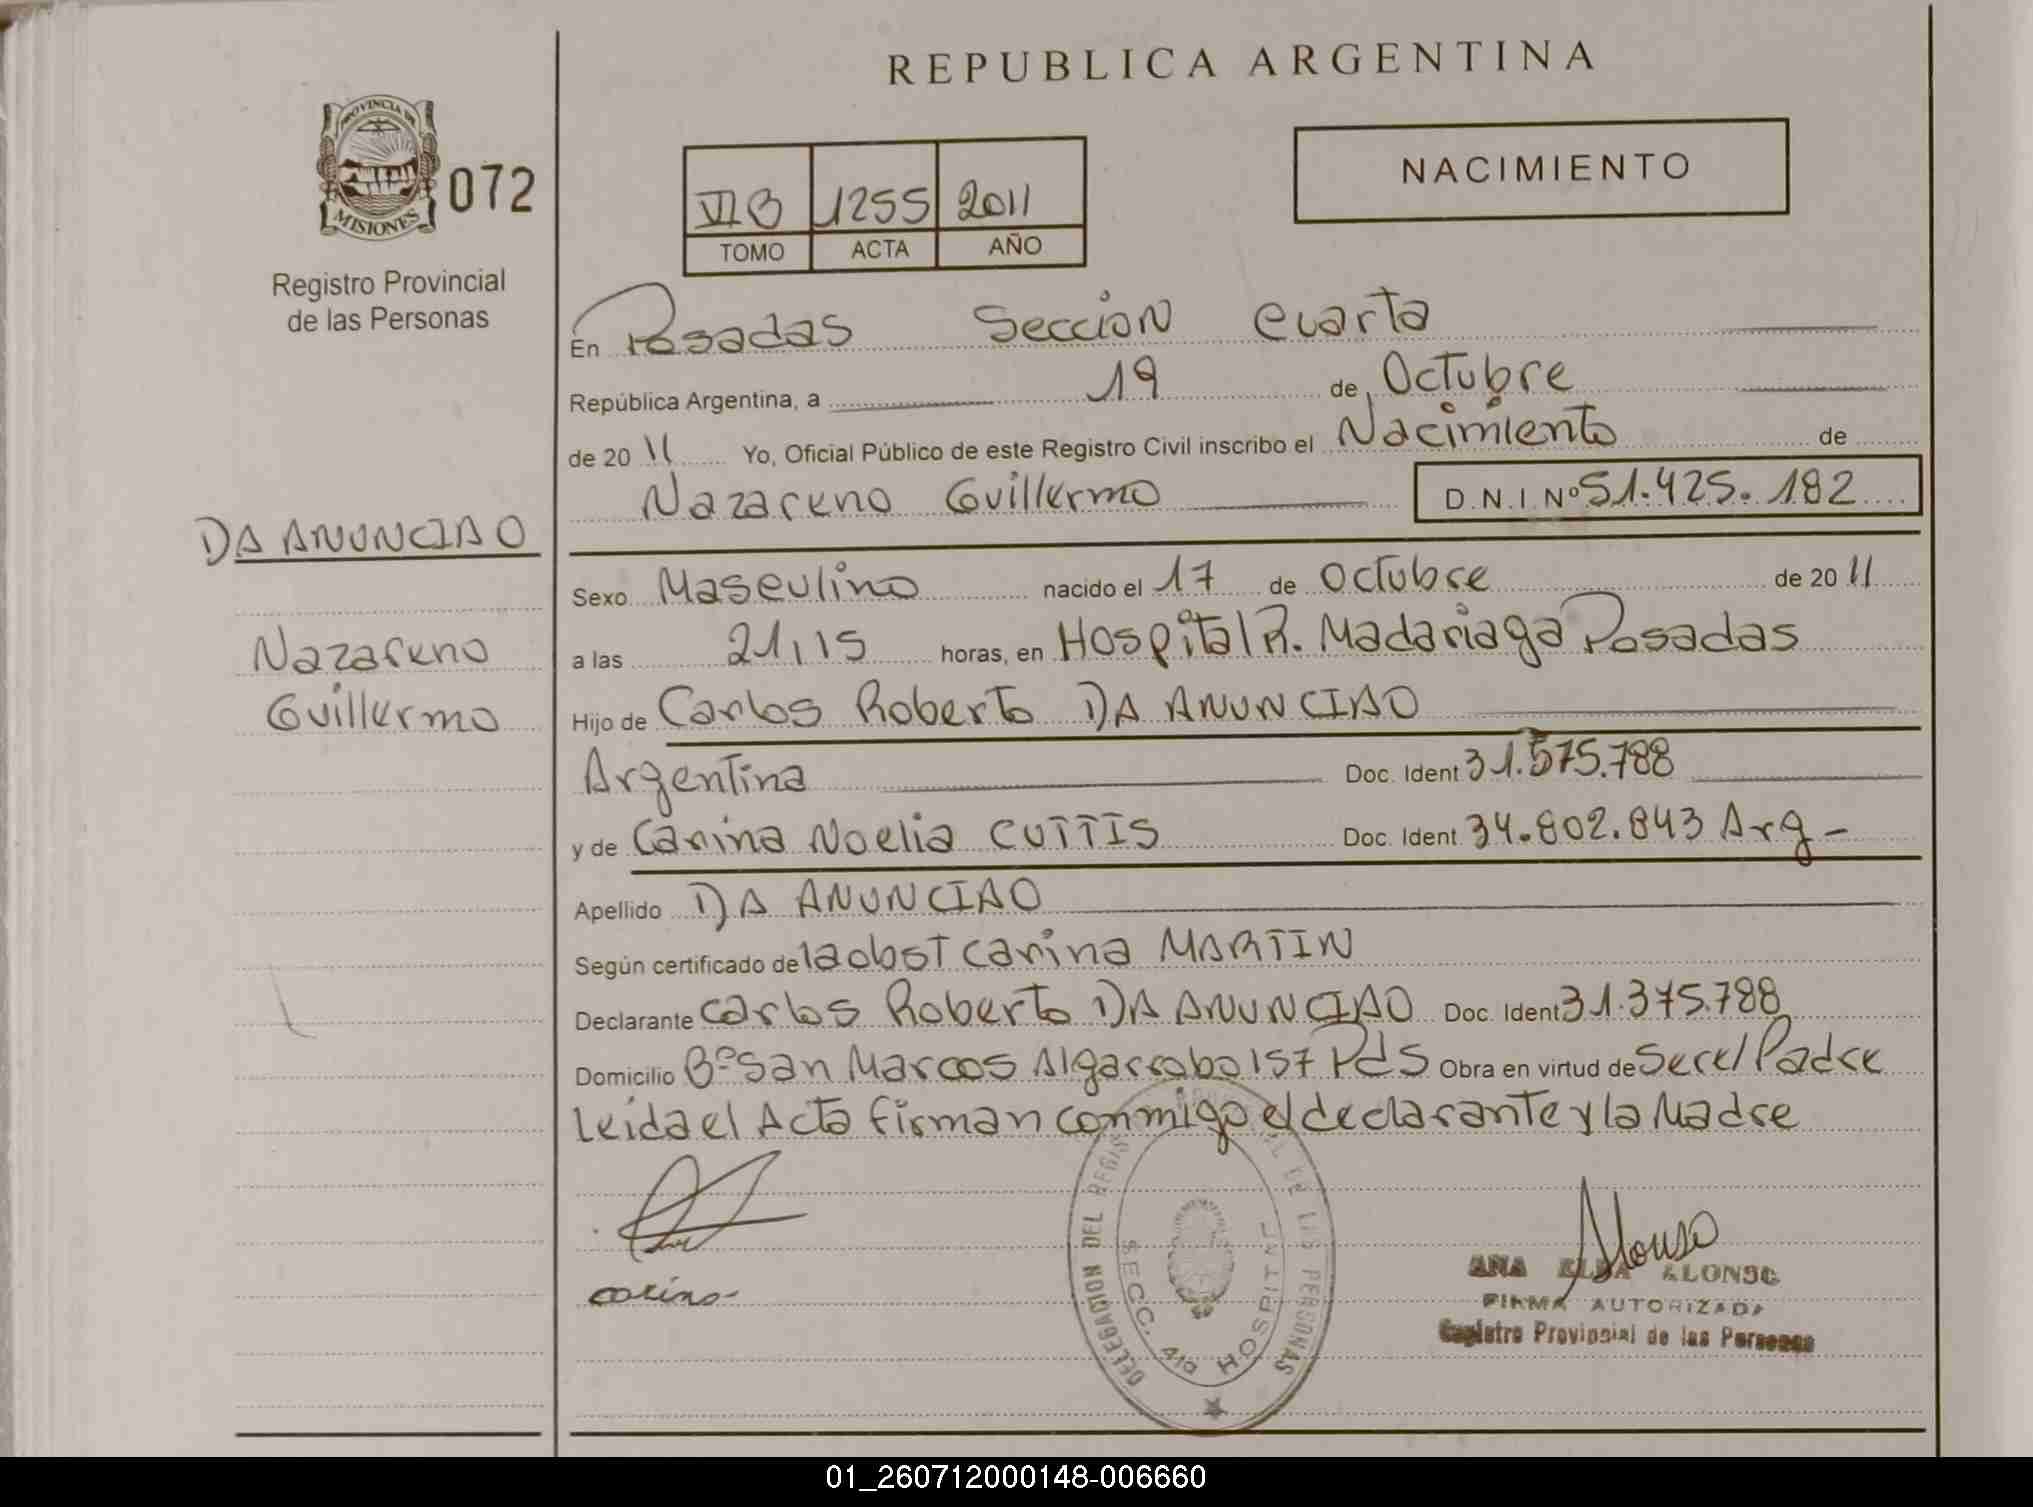 REPUBLICA ARGENTINA
PROVINCIA DE
MISIONES
072
Registro Provincial
de las Personas
VI B 1255 2011
TOMO ACTA AÑO
NACIMIENTO
En Posadas Sección Cuarta
República Argentina, a 19 de Octubre
de 2011 Yo, Oficial Público de este Registro Civil inscribo el Nacimiento de
Nazareno Guillermo D.N.I Nº 51.425.182
DA ANUNCIAO
Nazareno
Guillermo
Sexo Masculino nacido el 17 de Octubre de 2011
a las 21,15 horas, en Hospital R. Madariaga Posadas
Hijo de Carlos Roberto DA ANUNCIAO
Argentina Doc. Ident 31.575.788
y de Carina Noelia CUTTIS Doc. Ident 34.802.843 Arg -
Apellido DA ANUNCIAO
Según certificado de la obst Carina MARTIN
Declarante Carlos Roberto DA ANUNCIAO Doc. Ident 31.375.788
Domicilio Bº San Marcos Algarrobo 157 Pds Obra en virtud de Ser el Padre
Leida el Acta firman conmigo el declarante y la Madre
carina
DELEGACION DEL REGIS DE LAS PERSONAS
SECC. 4ta HOSPITAL
Alonso
ANA ELBA ALONSO
FIRMA AUTORIZADA
Registro Provincial de las Personas
01_260712000148-006660